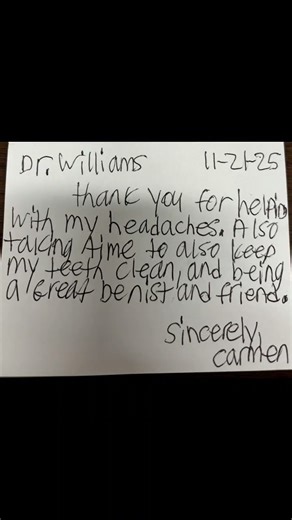 Dr. Williams 11-21-25
thank you for helpin
with my headaches. Also
taking time to also keep
my teeth clean, and being
a Great benist and friend.
sincerely,
carmen